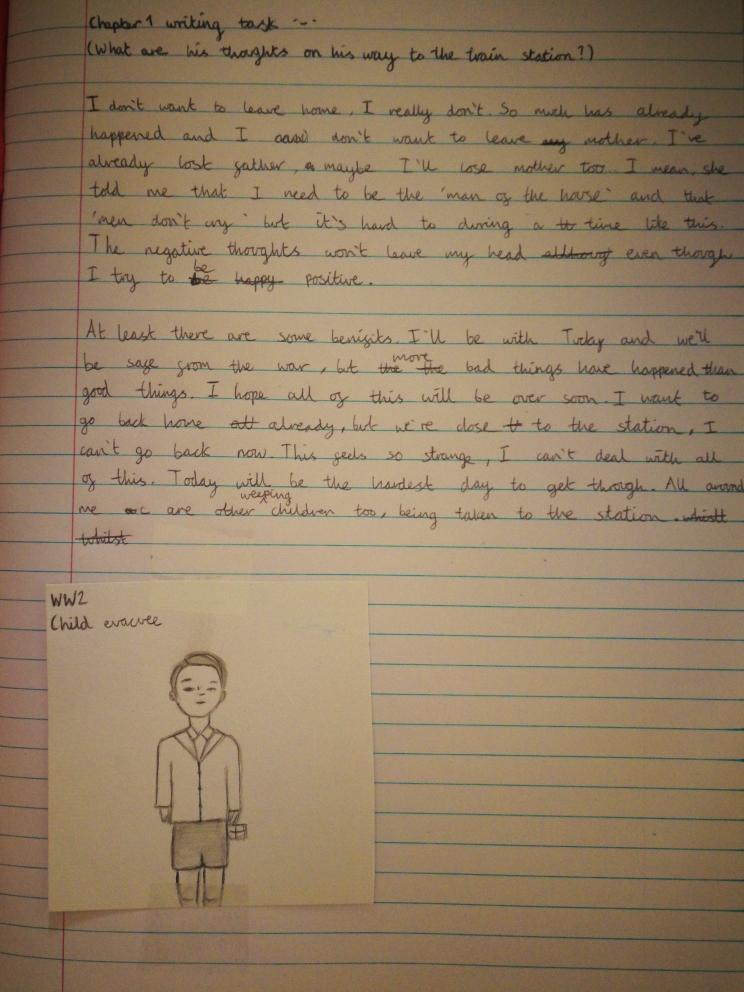 Chapter 1 writing task ---
(What are his thoughts on his way to the train station?)
I don't want to leave home, I really don't. So much has already
happened and I don't want to leave my mother. I've
already lost father, maybe I'll lose mother too. I mean, she
told me that I need to be the 'man of the house' and that
'men don't cry' but it's hard to during a time like this.
The negative thoughts won't leave my head even though
I try to be positive.
At least there are some benifits. I'll be with Tucky and we'll
be safe from the war, but more bad things have happened than
good things. I hope all of this will be over soon. I want to
go back home already, but we're close to the station, I
can't go back now. This feels so strange, I can't deal with all
of this. Today will be the hardest day to get through. All around
me are other weeping children too, being taken to the station.
WW2
Child evacuee